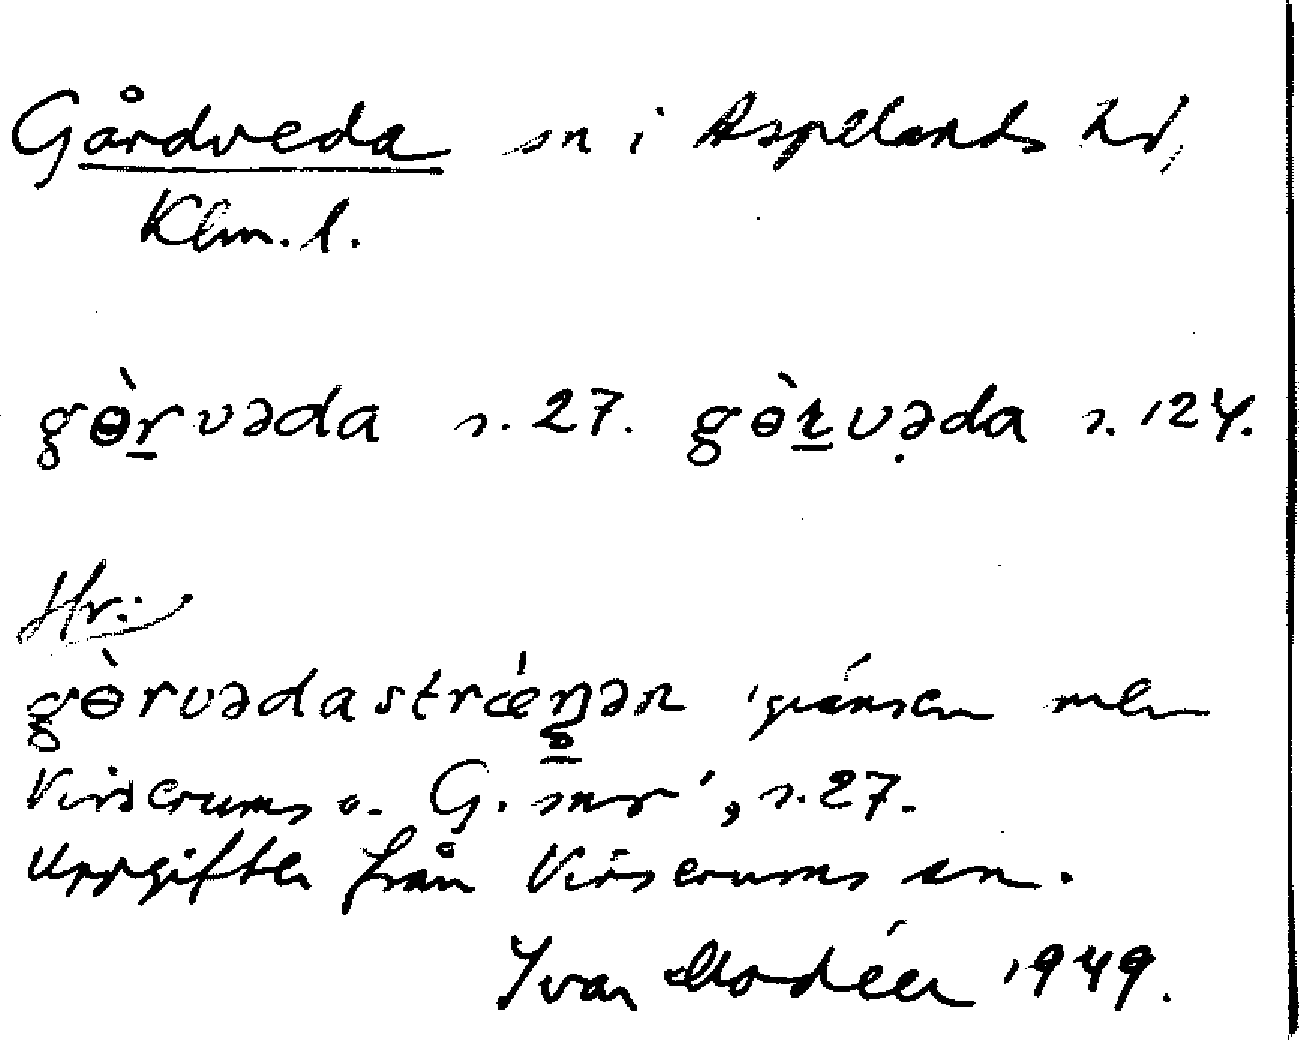 Gårdveda sn i Aspelands hd,
Klm. l.
gɵ̀r̲vəda s. 27. gɵ̀r̲və̣da s. 124.
Hr.:
gɵ̀rvədastrǽŋən 'gränsen mellan
Virserums o. G. snr', s. 27.
Uppgifter från Virserums sn.
Ivar Modéer 1949.